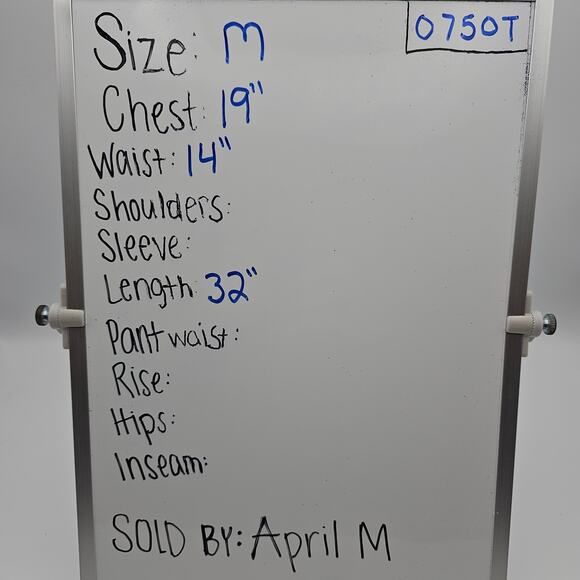 Size: M
0750T
Chest: 19"
Waist: 14"
Shoulders:
Sleeve:
Length: 32"
Pant waist:
Rise:
Hips:
Inseam:
SOLD BY: April M